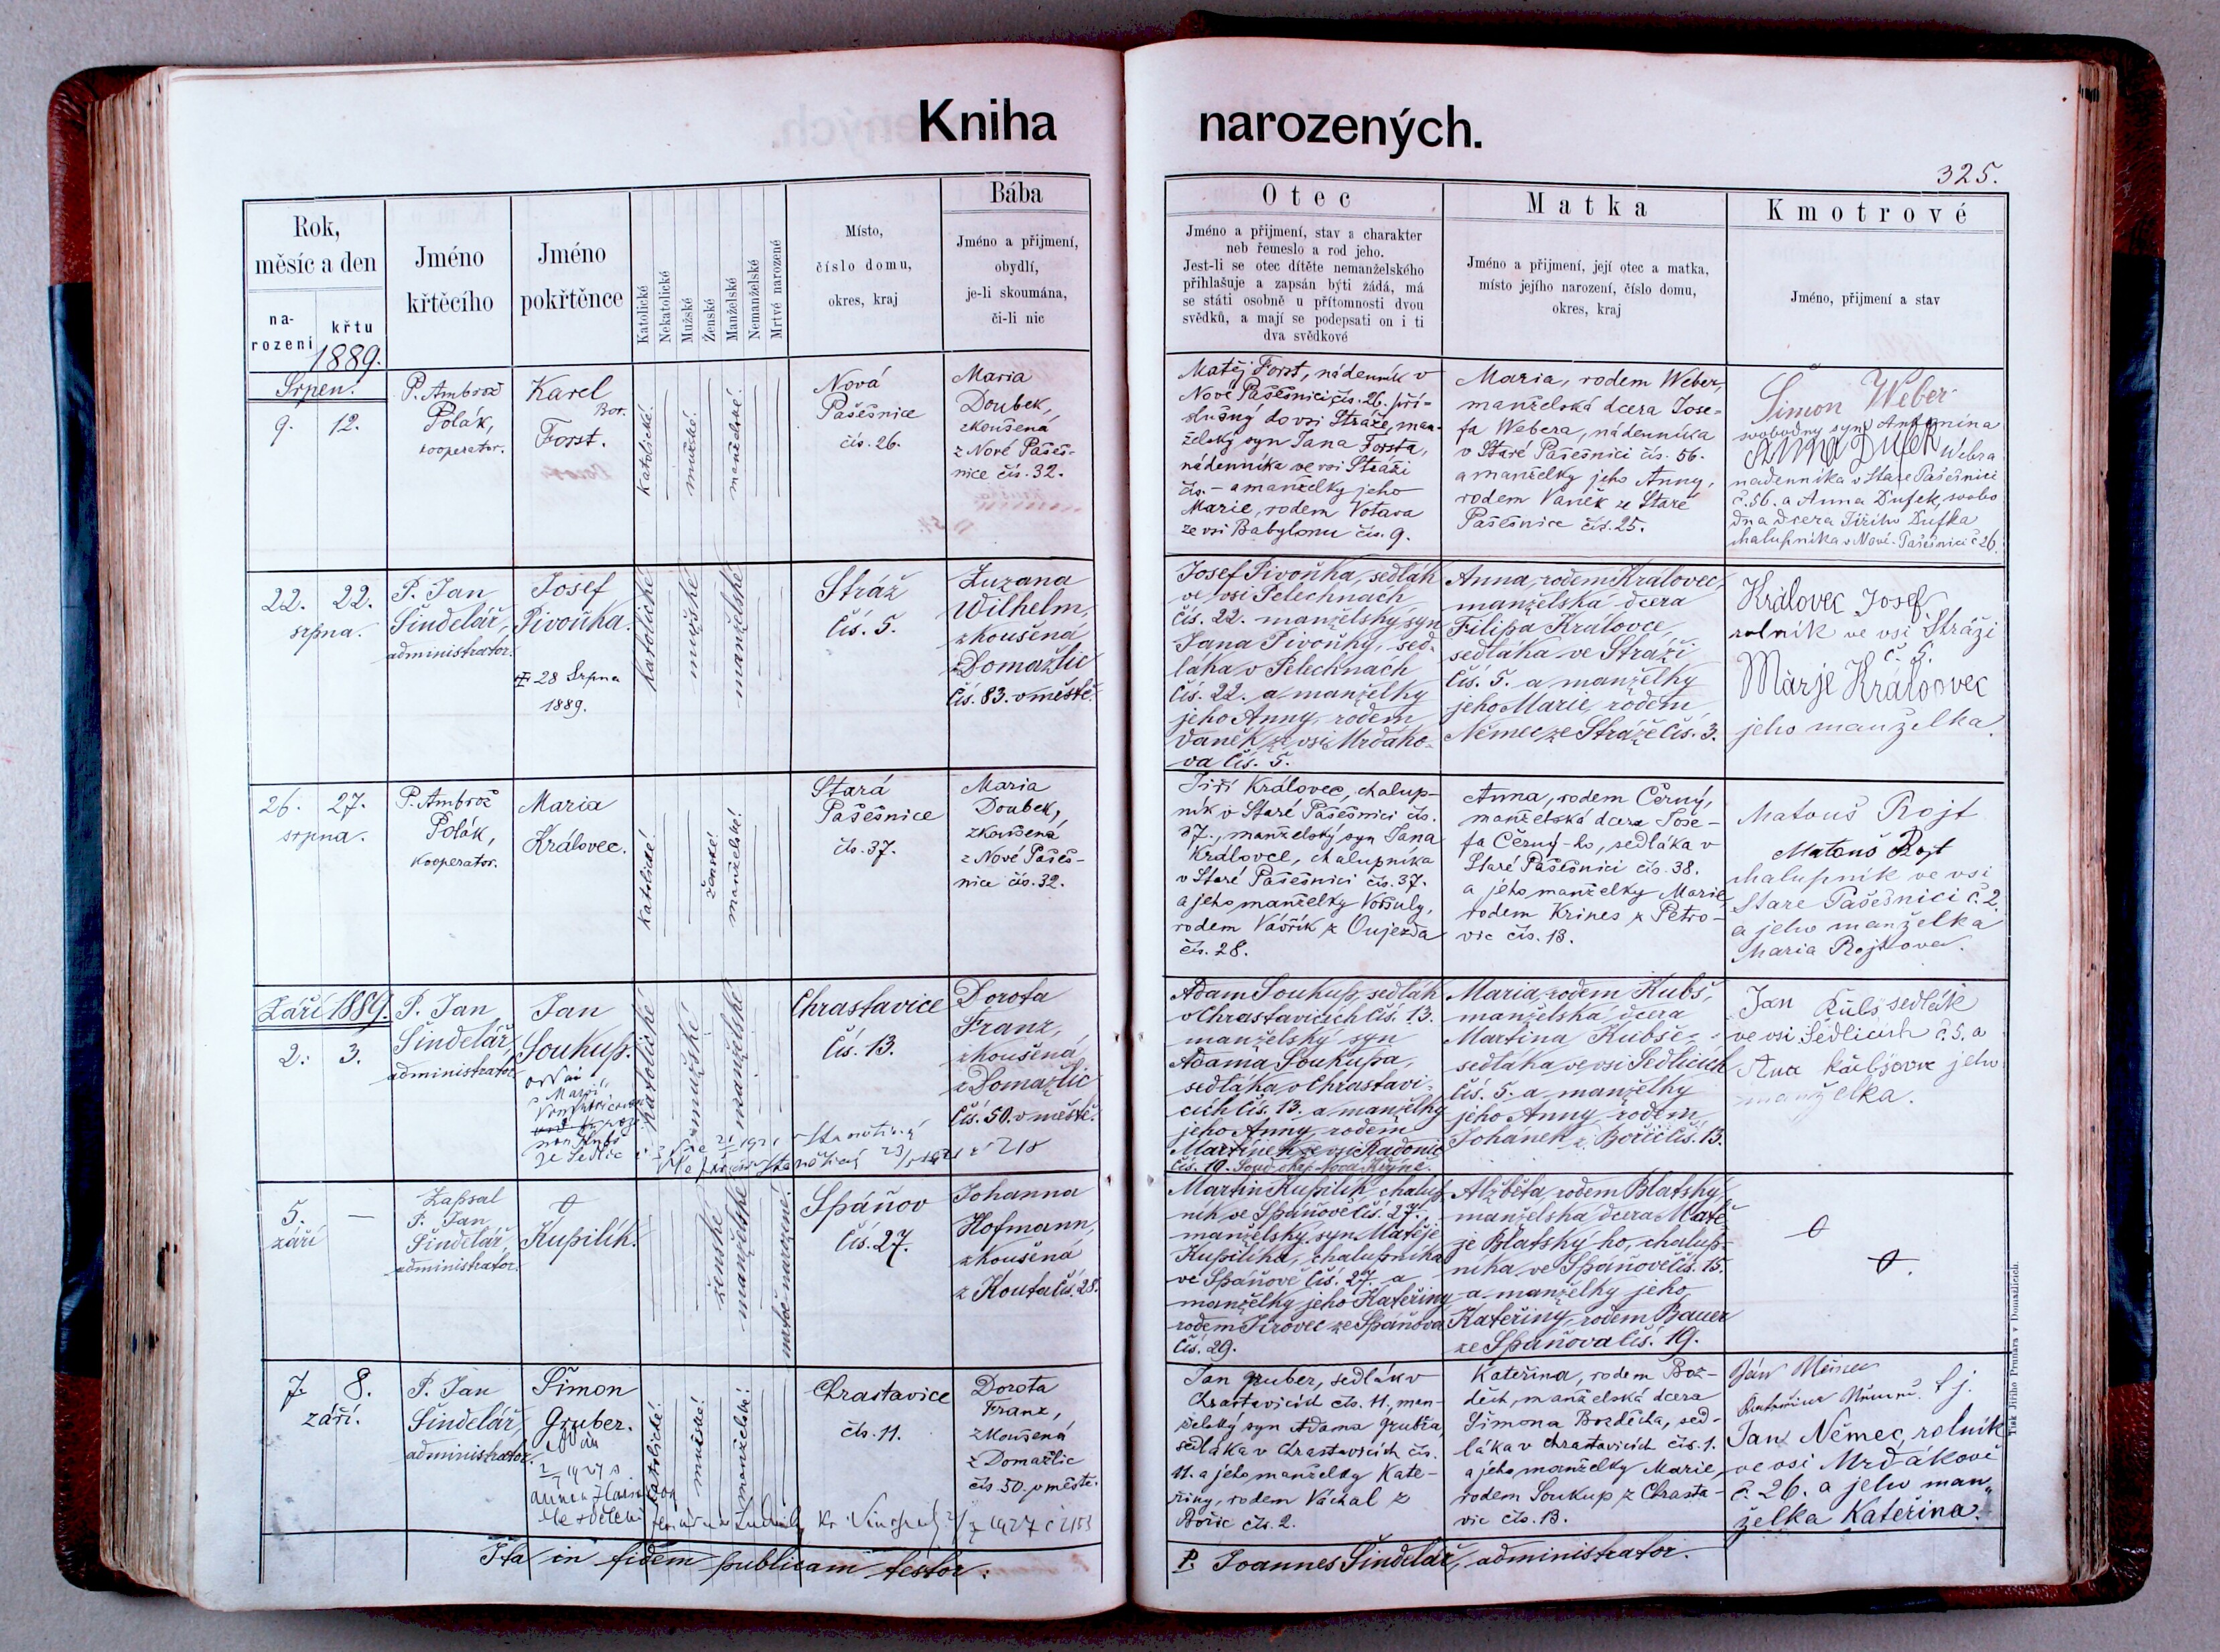 Kniha narozených.
325.
Rok,
měsíc a den
na-
rození
křtu
1889.
Jméno
křtěcího
Jméno
pokřtěnce
Katolické
Nekatolické
Mužské
Ženské
Manželské
Nemanželské
Mrtvé narozené
Místo,
číslo domu,
okres, kraj
Bába
Jméno a přijmení,
obydlí,
je-li skoumána,
či-li nic
Otec
Jméno a přijmení, stav a charakter
neb řemeslo a rod jeho.
Jest-li se otec dítěte nemanželského
přihlašuje a zapsán býti žádá, má
se státi osobně u přítomnosti dvou
svědků, a mají se podepsati on i ti
dva svědkové
Matka
Jméno a přijmení, její otec a matka,
místo jejího narození, číslo domu,
okres, kraj
Kmotrové
Jméno, přijmení a stav
Srpen.
9. 12.
P. Ambrož
Polák,
kooperator.
Karel
Forst.
katolické.
mužské.
manželské.
Nová
Pašešnice
čís. 26.
Maria
Doubek,
zkoušená
z Nové Pašeš-
nice čís. 32.
Matěj Forst, nádenník v
Nové Pašešnici čís. 26. pří-
slušný do vsi Stráže, man-
želský syn Jana Forsta,
nádenníka ve vsi Stráži
čís. – a manželky jeho
Marie, rodem Votava
ze vsi Babylonu čís. 9.
Maria, rodem Weber,
manželská dcera Jose-
fa Webera, nádenníka
v Staré Pašešnici čís. 56.
a manželky jeho Anny,
rodem Vaněk ze Staré
Pašešnice čís. 25.
Šimon Weber
svobodny syn Antonína
Anna Dufek Webra
nadenníka v Stare Pašešnici
č. 56. a Anna Dufek, svobo
dna dcera Jiřiho Dufka
chalupníka v Nové-Pašešnici č 26.
22. 22.
srpna.
P. Jan
Šindelář,
administrator.
Josef
Pivoňka.
28 Srpna
1889.
katolické
mužské
manželské
Stráž
čís. 5.
Zuzana
Wilhelm,
zkoušená
z Domažlic
čís. 83. v městě.
Josef Pivoňka, sedlák
ve vsi Pelechnách
čís. 22. manželský syn
Jana Pivoňky, sed-
láka v Pelechnách
čís. 22. a manželky
jeho Anny, rodem
Vaněk ze vsi Mrďáko-
va čís. 5.
Anna, rodem Královec,
manželská dcera
Filipa Královce
sedláka ve Stráži
čís. 5. a manželky
jeho Marie, rodem
Němec ze Stráže čís. 3.
Královec Josef
rolník ve vsi Stráži
č. 5.
Márje Královec
jeho manželka.
26. 27.
srpna.
P. Ambrož
Polák,
kooperator.
Maria
Královec.
katolické.
ženské.
manželské.
Stará
Pašešnice
čís. 37.
Maria
Doubek,
zkoušená
z Nové Pašeš-
nice čís. 32.
Jiří Královec, chalup-
ník v Staré Pašešnici čís.
37., manželský syn Jana
Královce, chalupníka
v Staré Pašešnici čís. 37.
a jeho manželky Voršuly,
rodem Vávřík z Oujezda
čís. 28.
Anna, rodem Černý,
manželská dcera Jose-
fa Černý-ho, sedláka v
Staré Pašešnici čís. 38.
a jeho manželky Marie,
rodem Krines z Petro-
vic čís. 13.
Matouš Rojt
Matouš Rojt
chalupník ve vsi
Stare Pašešnici č. 2.
a jeho manželka
Maria Rojtova.
Září 1889.
2. 3.
P. Jan
Šindelář
administrator
Jan
Soukup.
oddán
s Marií
ze Sedlic
katolické
mužské
manželské
Chrastavice
čís. 13.
Dorota
Franz,
zkoušená
z Domažlic
čís. 50. v městě.
Adam Soukup, sedlák
v Chrastavicích čís. 13.
manželský syn
Adama Soukupa,
sedláka v Chrastavi-
cích čís. 13. a manželky
jeho Anny rodem
Martínek ze vsi Radonic
čís. 19. Soud. okr. Nová Kdyně.
Maria, rodem Kubš,
manželská dcera
Martina Kubše-
sedláka ve vsi Sedlicích
čís. 5. a manželky
jeho Anny rodem
Johánek z Bořic čís. 13.
Jan Kubs sedlák
ve vsi Sedlicích č. 5. a
manželka.
5. —
září
Zapsal
P. Jan
Šindelář,
administrator.
Kupilík.
ženské
manželské
mrtvě narozené.
Spáňov
čís. 27.
Johanna
Hofmann,
zkoušená
z Kouta čís. 28.
Martin Kupilík, chalup-
ník ve Spáňově čís. 27.,
manželský syn Matěje
Kupilíka, chalupníka
ve Spáňově čís. 27. a
manželky jeho Kateřiny
rodem Jirovec ze Spáňova
čís. 29.
Alžběta, rodem Blatský,
manželská dcera Matě-
je Blatský-ho, chalup-
níka ve Spáňově čís. 15.
a manželky jeho,
Kateřiny, rodem Bauer
ze Spáňova čís. 19.
7. 8.
září.
P. Jan
Šindelář,
administrator.
Šimon
Gruber.
oddán
katolické.
mužské.
manželské.
Chrastavice
čís. 11.
Dorota
Franz,
zkoušená
z Domažlic
čís. 50. v městě.
Jan Gruber, sedlák v
Chrastavicích čís. 11., man-
želský syn Adama Grubra,
sedláka v Chrastavicích čís.
11. a jeho manželky Kate-
řiny, rodem Váchal z
Bořic čís. 2.
Kateřina, rodem Boz-
děch, manželská dcera
Šimona Bozděcha, sed-
láka v Chrastavicích čís. 1.
a jeho manželky Marie,
rodem Soukup z Chrasta-
vic čís. 13.
Ján Němec
Jan Němec, rolník
ve vsi Mrďákově
č. 26. a jeho man-
želka Kateřina.
Ita in fidem publicam testor:
P. Joannes Šindelář, administrator.
Tisk Jiřího Prunara v Domažlicích.